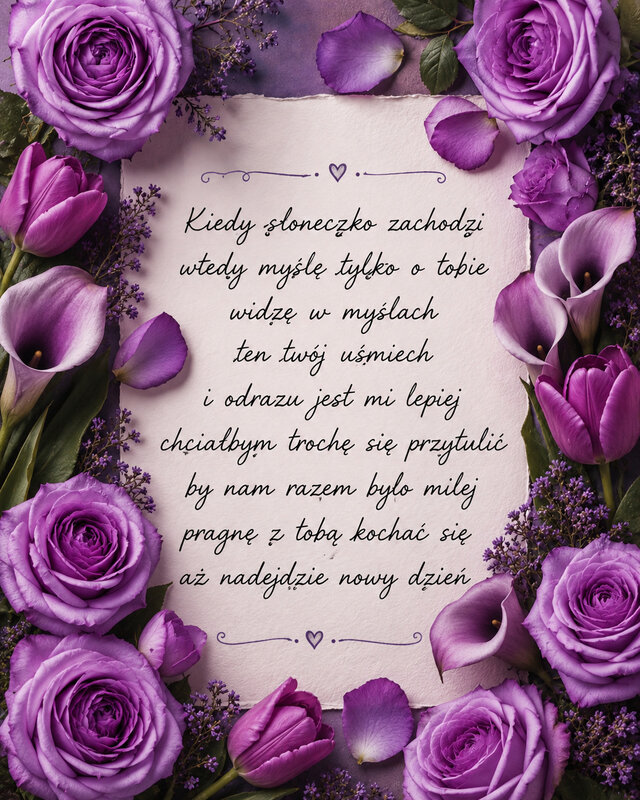 Kiedy słoneczko zachodzi
wtedy myślę tylko o tobie
widzę w myślach
ten twój uśmiech
i odrazu jest mi lepiej
chciałbym trochę się przytulić
by nam razem bylo milej
pragnę z tobą kochać się
aż nadejdzie nowy dzień